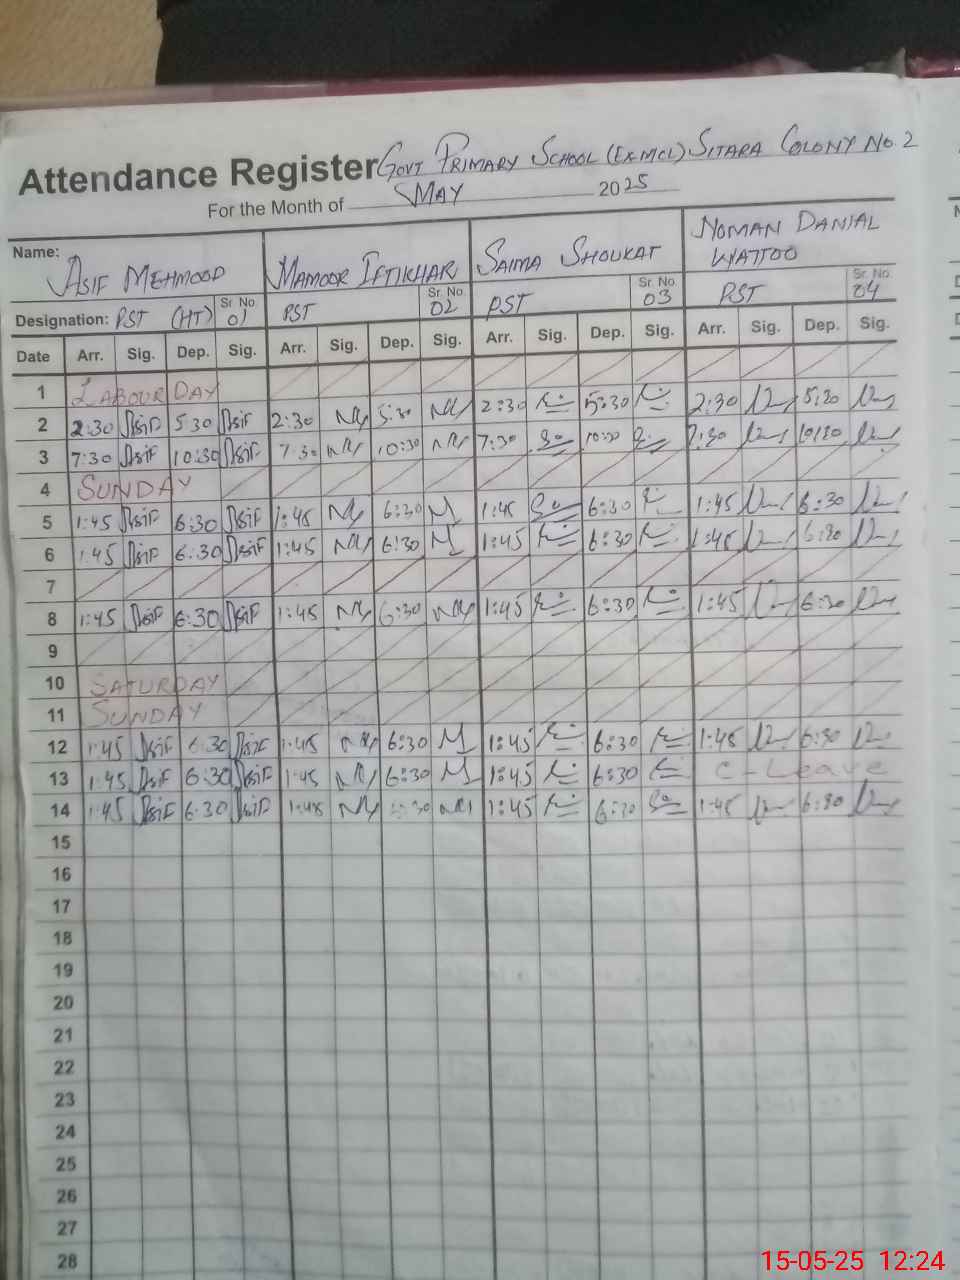 Attendance Register GOVT PRIMARY SCHOOL (EX.MCL) SITARA COLONY NO.2
For the Month of MAY 2025
Name: ASIF MEHMOOD MAMOOR IFTIKHAR SAIMA SHOUKAT NOMAN DANIAL WATTOO
Sr. No. Sr. No. Sr. No. Sr. No.
Designation: PST (HT) 01 PST 02 PST 03 PST 04
Date Arr. Sig. Dep. Sig. Arr. Sig. Dep. Sig. Arr. Sig. Dep. Sig. Arr. Sig. Dep. Sig.
1 LABOUR DAY
2 2:30 Asif 5:30 Asif 2:30 5:30 2:30 5:30 2:30 5:30
3 7:30 Asif 10:30 Asif 7:30 10:30 7:30 10:30 7:30 10:30
4 SUNDAY
5 1:45 Asif 6:30 Asif 1:45 6:30 1:45 6:30 1:45 6:30
6 1:45 Asif 6:30 Asif 1:45 6:30 1:45 6:30 1:45 6:30
7
8 1:45 Asif 6:30 Asif 1:45 6:30 1:45 6:30 1:45 6:30
9
10 SATURDAY
11 SUNDAY
12 1:45 Asif 6:30 Asif 1:45 6:30 1:45 6:30 1:45 6:30
13 1:45 Asif 6:30 Asif 1:45 6:30 1:45 6:30 C-Leave
14 1:45 Asif 6:30 Asif 1:45 6:30 1:45 6:30 1:45 6:30
15
16
17
18
19
20
21
22
23
24
25
26
27
28
15-05-25 12:24